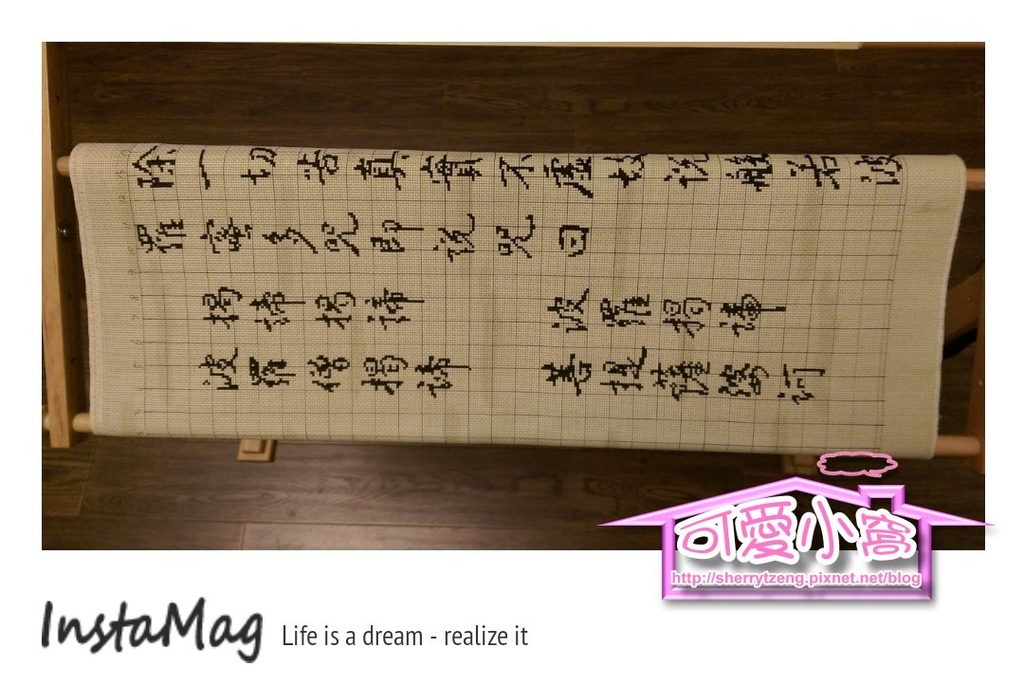 除一切苦真實不虛故說般若波
羅蜜多咒即說咒曰
揭諦揭諦 波羅揭諦
波羅僧揭諦 菩提薩婆訶
可愛小窩
http://sherrytzeng.pixnet.net/blog
InstaMag Life is a dream - realize it